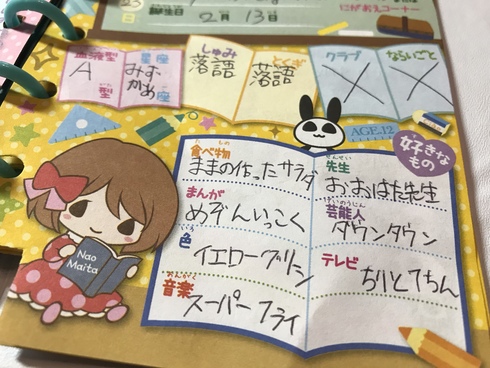 23
日
誕生日 2月13日
にがおえコーナー
血液型
A型
星座
みずがめ座
しゅみ
落語
とくぎ
落語
クラブ
X
ならいごと
X
AGE.12
好きなもの
食べ物
ままの作ったサラダ
まんが
めぞんいっこく
色
イエローグリーン
音楽
スーパーフライ
先生
おおはた先生
芸能人
ダウンタウン
テレビ
ちりとてちん
Nao
Maita